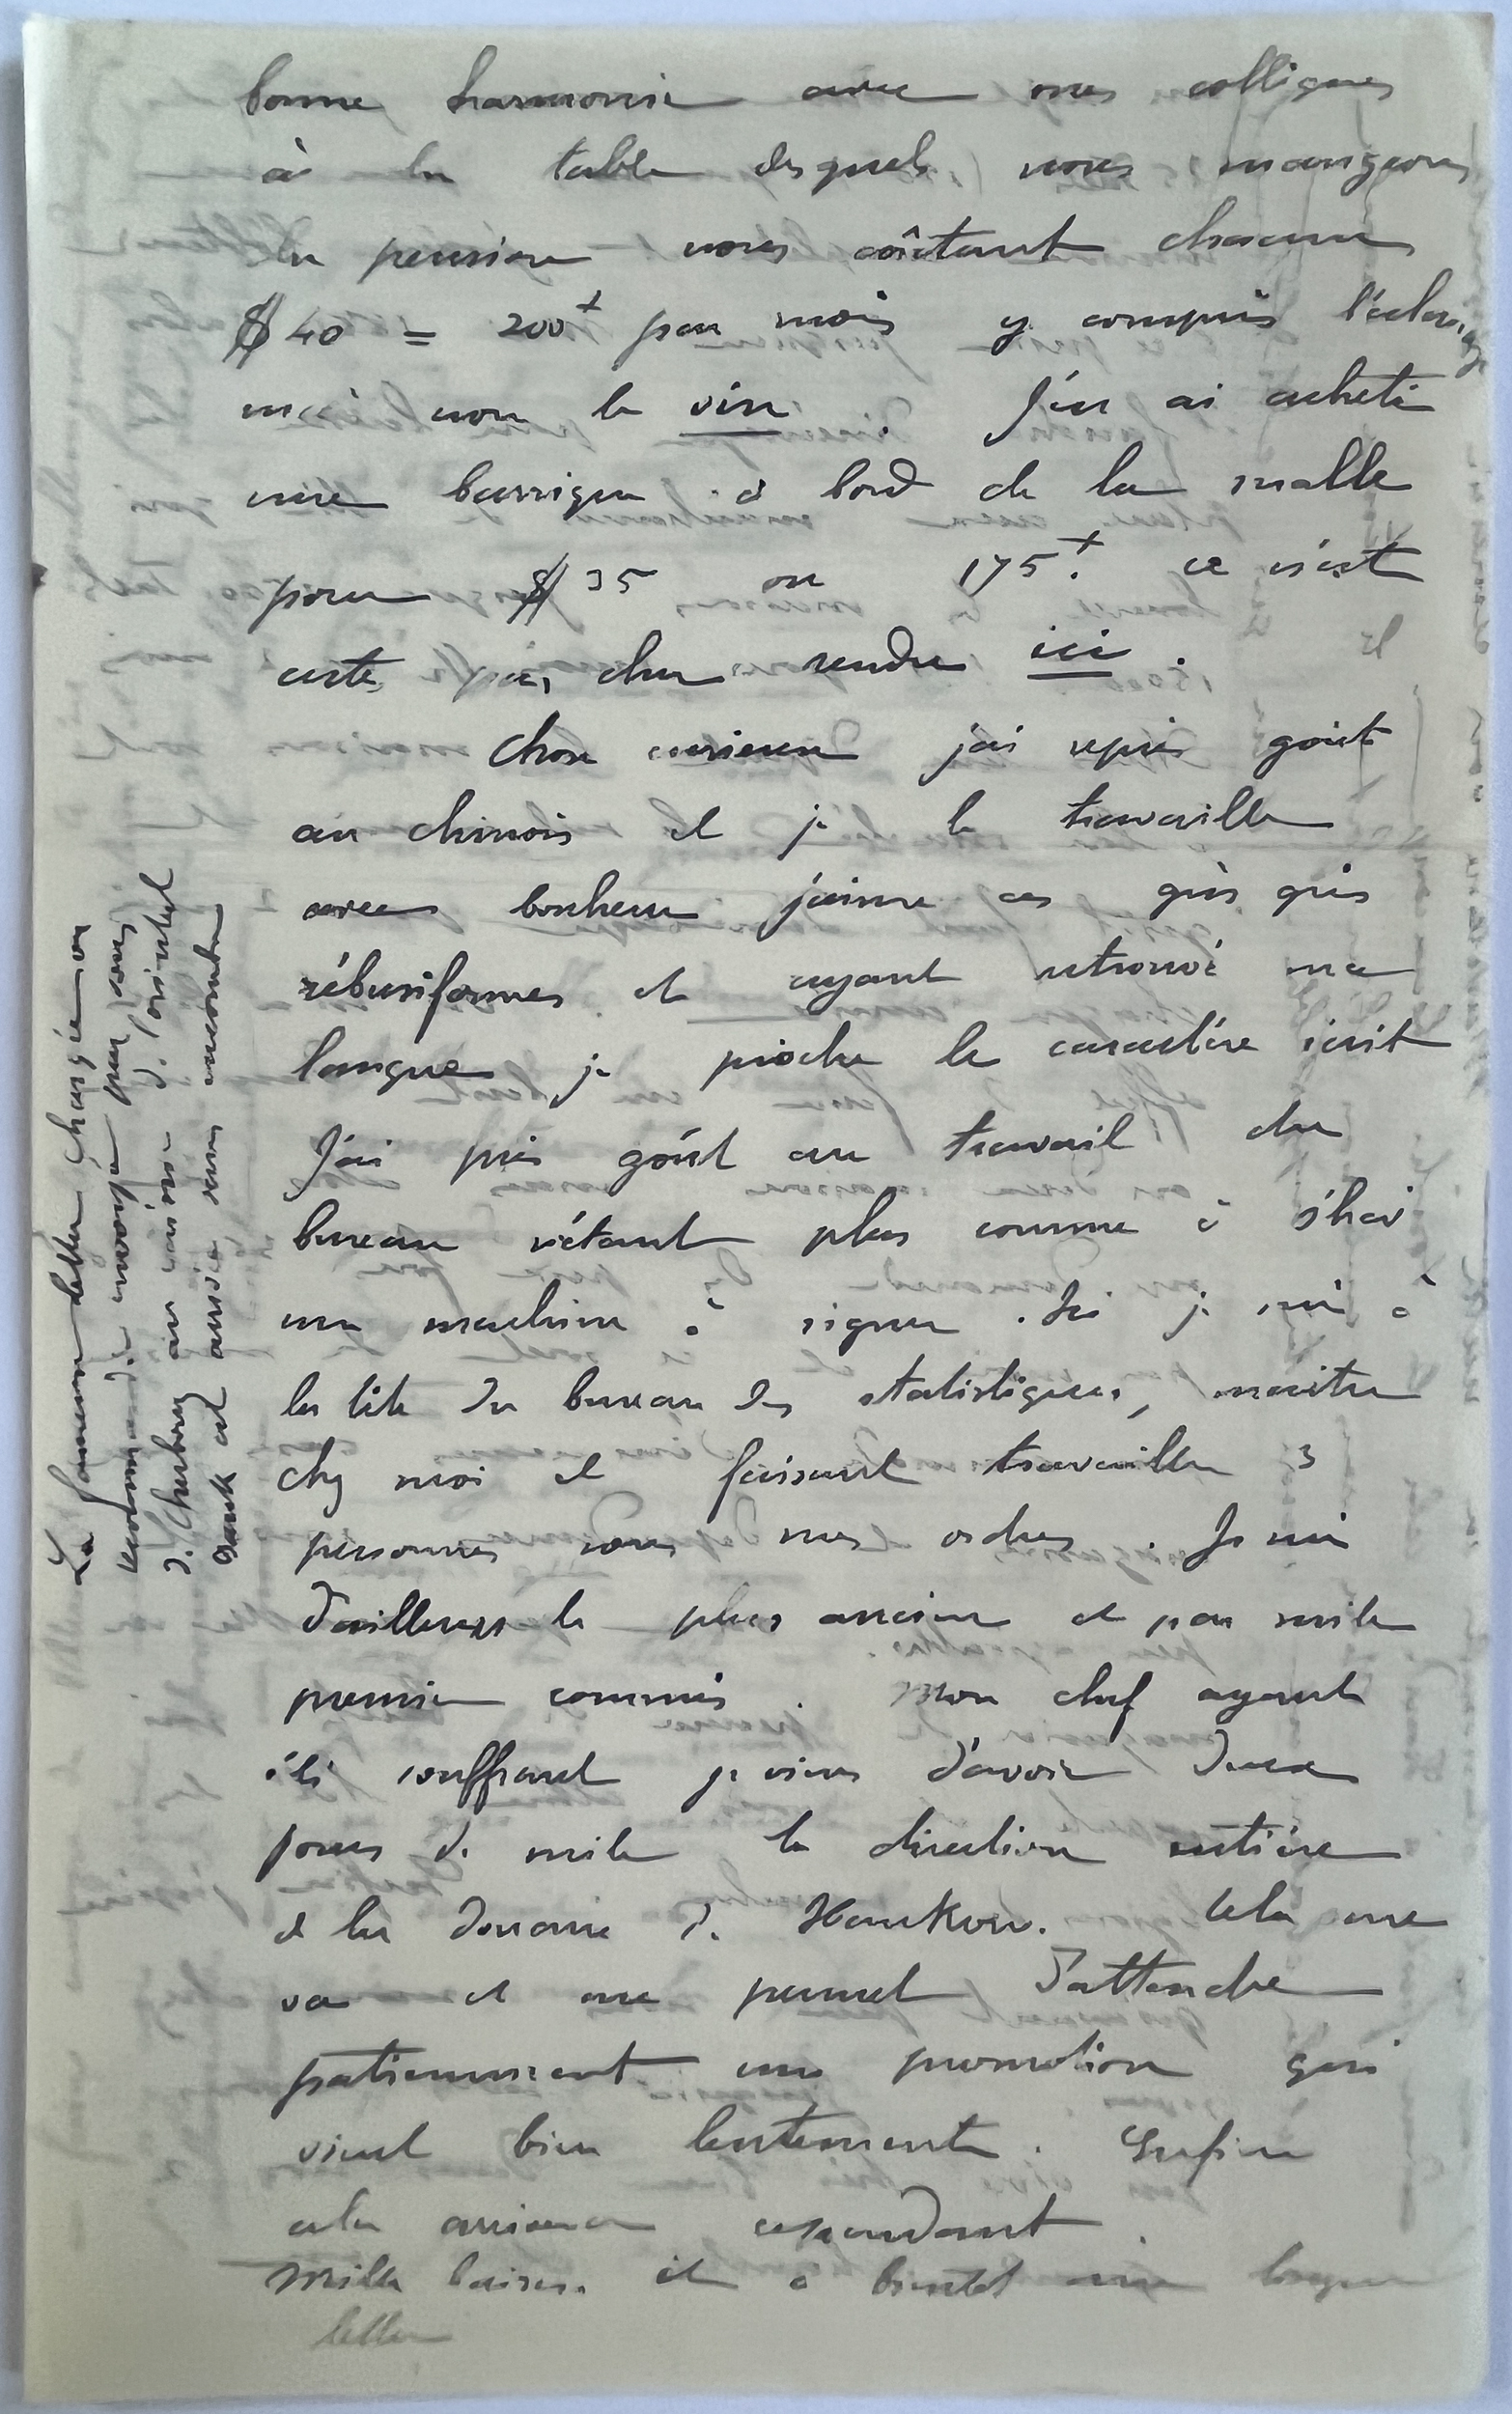 bonne harmonie avec mes collègues
à la table desquels nous mangeons
la pension nous coûtant chacun
$ 40 = 200 f par mois y compris l'éclairage
mais non le vin. J'en ai acheté
une barrique à bord de la malle
pour $ 35 ou 175 f. ce n'est
certes pas cher rendu ici.
Chose curieuse j'ai repris goût
au chinois et je le travaille
avec bonheur j'aime ces gris gris
rébusiformes et ayant retrouvé ma
langue je pioche le caractère écrit
J'ai pris goût au travail du
bureau n'étant plus comme à S'haï
une machine à signer. Ici je suis à
la tête du bureau des statistiques, maître
chez moi et faisant travailler 3
personnes sous mes ordres. Je suis
d'ailleurs le plus ancien et par suite
premier commis. Mon chef ayant
été souffrant je viens d'avoir deux
jours de suite la direction entière
de la douane de Hankow. Cela me
va et me permet d'attendre
patiemment une promotion qui
vient bien lentement. Enfin
cela arrivera cependant.
Mille baisers et à bientôt une longue
lettre
La fameuse lettre chargée ou
recommandée envoyée par vous
de Cherbourg au caisse de l'oriental
Bank est arrivée sans encombre